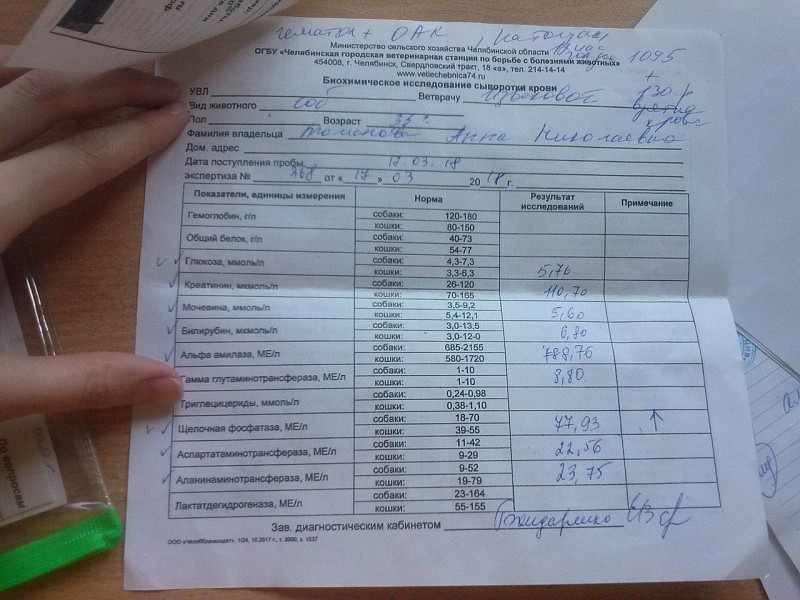 гематол + ОАК, натощак
Министерство сельского хозяйства Челябинской области
ОГБУ «Челябинская городская ветеринарная станция по борьбе с болезнями животных»
1095
454008, г. Челябинск, Свердловский тракт, 18 «а», тел. 214-14-14
www.vetlechebnica74.ru
+
Биохимическое исследование сыворотки крови
130 р
УВЛ Ветврачу
взятие
Вид животного соб
крови
Пол Возраст
Фамилия владельца Анна Николаевна
Дом. адрес
Дата поступления пробы 17.03.18
экспертиза № 368 от «17» 03 2018 г.
Показатели, единицы измерения Норма Результат исследований Примечание
Гемоглобин, г/л собаки: 120-180
кошки: 80-150
Общий белок, г/л собаки: 40-73
кошки: 54-77
Глюкоза, ммоль/л собаки: 4,3-7,3
кошки: 3,3-6,3 5,76
Креатинин, мкмоль/л собаки: 26-120
кошки: 70-165 110,70
Мочевина, ммоль/л собаки: 3,5-9,2
кошки: 5,4-12,1 5,60
Билирубин, мкмоль/л собаки: 3,0-13,5
кошки: 3,0-12-0 6,80
Альфа амилаза, МЕ/л собаки: 685-2155
кошки: 580-1720 788,76
Гамма глутаминотрансфераза, МЕ/л собаки: 1-10
кошки: 1-10 8,80
Триглецицериды, ммоль/л собаки: 0,24-0,98
кошки: 0,38-1,10
Щелочная фосфатаза, МЕ/л собаки: 18-70
кошки: 39-55 77,93 ↑
Аспартатаминотрансфераза, МЕ/л собаки: 11-42
кошки: 9-29 22,56
Аланинаминотрансфераза, МЕ/л собаки: 9-52
кошки: 19-79 23,75
Лактатдегидрогеназа, МЕ/л собаки: 23-164
кошки: 55-155
Зав. диагностическим кабинетом
ООО «Челябланкиздат», 1/24, 10.2017 г., т. 2000, з. 1537
По вопросам